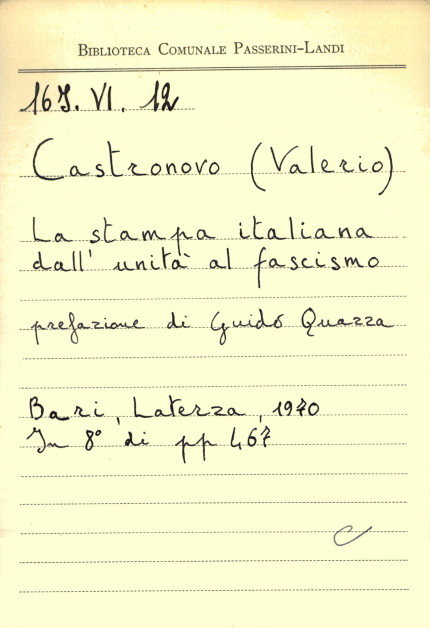 Biblioteca Comunale Passerini-Landi
16J. VI. 12
Castronovo (Valerio)
La stampa italiana
dall' unità al fascismo
prefazione di Guido Quazza
Bari, Laterza, 1970
In 8° di pp 467
C